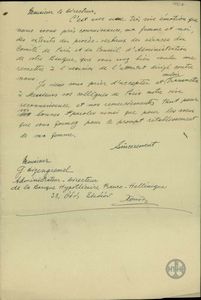 Monsieur le Directeur,
C'est avec une très vive émotion que
nous avons pris connaissance, ma femme et moi,
des extraits des procès-verbaux des séances du
Comité de Paris et du Conseil d'Administration
de votre Banque, que vous avez bien voulu me
remettre, à l'occasion de l'attentat dirigé contre
nous.
Je viens vous prier d'accepter et transmettre
à Messieurs vos collègues de Paris notre vive
reconnaissance et nos remerciements tant pour
ses bonnes paroles ainsi que pour les vœux
que vous formez pour le prompt rétablissement
de ma femme.
Sincèrement
Monsieur
Administrateur-Directeur
de la Banque Hypothécaire Franco-Hellénique